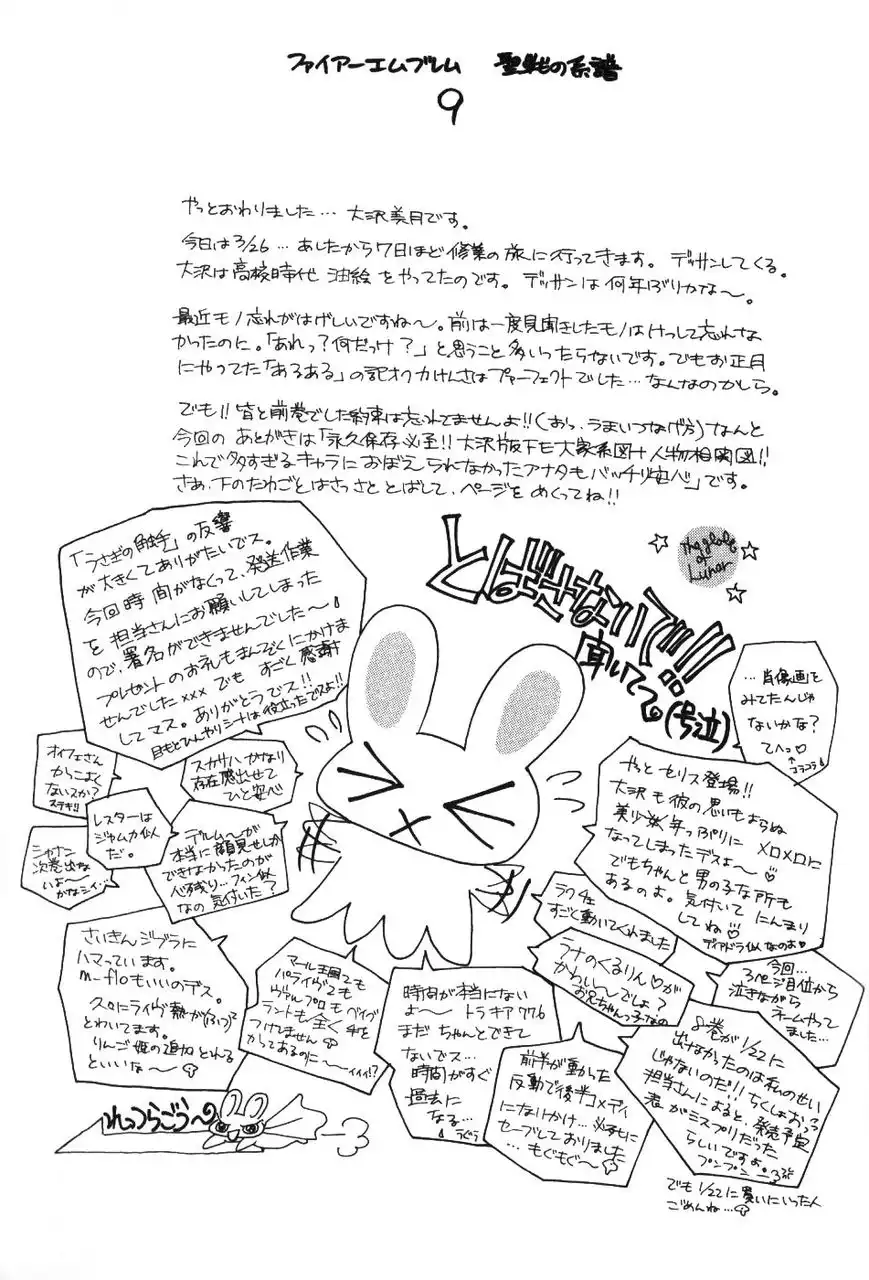 ファイアーエムブレム 聖戦の系譜
9
やっとおわりました… 大沢美月です。
今日は3/26…あしたから7日ほど修業の旅に行ってきます。デッサンしてくる。
大沢は高校時代 油絵をやってたのです。デッサンは何年ぶりかな〜。
最近モノ忘れがはげしいですね〜。前は一度見聞きしたモノはけっして忘れな
かったのに。「あれっ?何だっけ?」と思うこと多いったらないです。でもお正月
にやってた「あるある」の記オク力けんさはプァーフェクトでした…なんなのかしら。
でも!!皆と前巻でした約束は忘れてませんよ!!(おっ、うまいつなげ方)なんと
今回の あとがきは「永久保存必至!!大沢版下モ大家系図+人物相関図!!
これで多すぎるキャラにおぼえられなかったアナタもバッチリ安心」です。
さあ、下のたわごとはさっさととばして、ページをめくってね!!
「うさぎの触手」の反響
が大きくてありがたいでス。
今回時間がなくって、発送作業
を担当さんにお願いしてしまった
ので、署名ができませんでした〜
プレゼントのお礼もまんぞくにかけま
せんでした×××でも すごく感謝
してマス。ありがとうでス!!
目もとひんやりシートは役立ったでスよ!!
とばさないで!!
聞いてて。(号泣)
The globe
of
Lunar
…肖像画を
みてたんじゃ
ないかな?
てへっ
コラコラ
オイフェさん
かっこよく
ないスか?
ステキ!!
スカサハ かなり
存在感出せて
ひと安心
レスターは
ジャムカ似
だ。
シャナン
次巻出な
いよ〜
かなシイ…
デルムーが
本当に顔見せしか
できなかったのが
心残り…フィン似
なの 気付いた?
やっとセリス登場!!
大沢も彼の思いもよらぬ
美少年っぷりに メロメロに
なってしまったデスよ〜♡
でもちゃんと男の子な所も
あるのよ。気付いて にんまり
してね♡
ディアドラ似なのよ♡
ラクチェ
すごく動いてくれました
ラナのくるりん♡が
かわい〜でしょ?
お兄ちゃんっ子なの
今回…
3ページ目位から
泣きながら
ネームやって
ました…
さいきんジブラに
ハマっています。
m-floもいいのデス。
久々にライヴ熱が
とわいてます。
りんご姫の追加とれる
といいな〜
マール王国2も
パライヴ2も
ヴァルプロも ベイグ
ラントも全く手を
つけてません
かってあるのに〜ィィィ!?
時間が本当にない
よ〜 トラキア776
まだ ちゃんとできて
ないでス…
時間がすぐ
過去に
なる…
うぐぅ
前半が動いた
反動で後半コメディ
にないかけ…必死に
セーブしておりました
…もぐもぐ〜
8巻が1/22に
出なかったのは私のせい
じゃないのだ!!ちくしょおっっ
担当さんによると、発売予定
表がミスプリだった
らしいですよ。
プンプン
でも1/22に買いにいった人
ごめんね…
れっつらごう〜